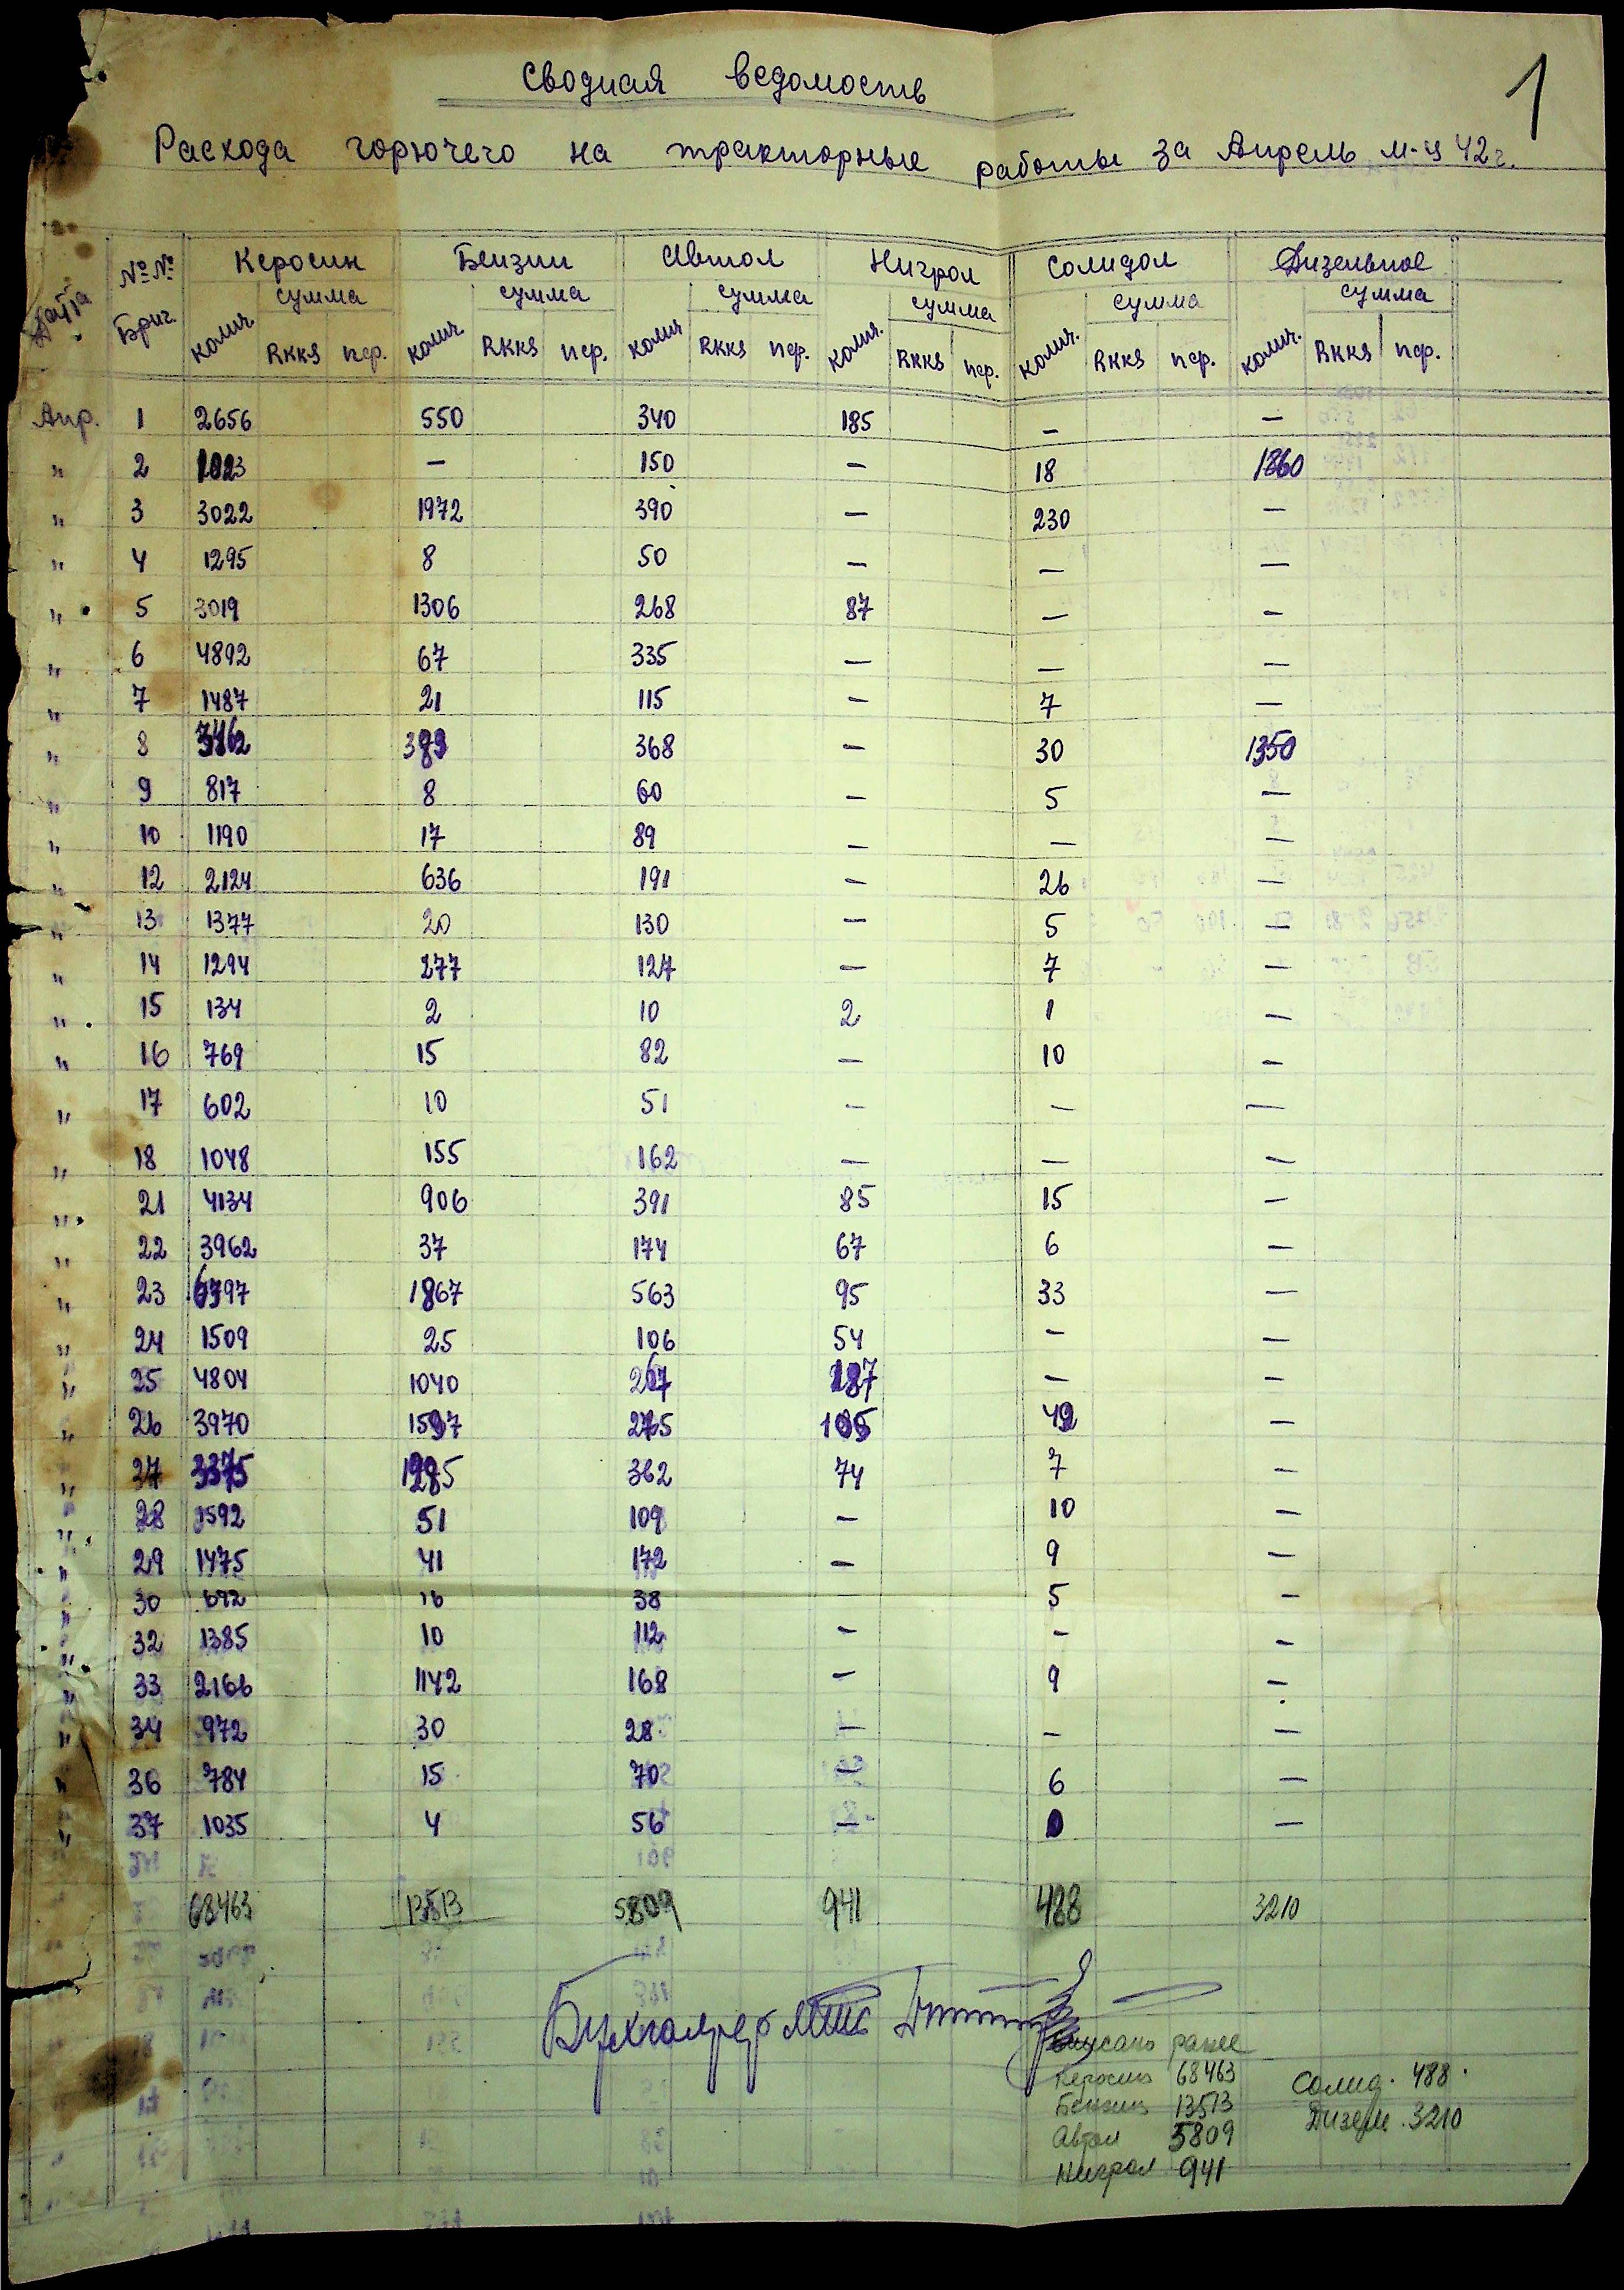 1
Сводная ведомость
Расхода горючего на тракторные работы за Апрель м-ц 42 г.
Дата №№ Бриг. Керосин Бензин Автол Нигрол Солидол Дизельное
сумма сумма сумма сумма сумма сумма
колич. RKKS пер. колич. RKKS пер. колич. RKKS пер. колич. RKKS пер. колич. RKKS пер. колич. RKKS пер.
Апр. 1 2656 550 340 185 — —
" 2 1023 — 150 — 18 1860
" 3 3022 1972 390 — 230 —
" 4 1295 8 50 — — —
" 5 3019 1306 268 87 — —
" 6 4892 67 335 — — —
" 7 1487 21 115 — 7 —
" 8 368 — 30 1350
" 9 817 8 60 — 5 —
" 10 1190 17 89 — — —
" 12 2124 636 191 — 26 —
" 13 1377 20 130 — 5 —
" 14 1294 277 127 — 7 —
" 15 134 2 10 2 1 —
" 16 769 15 82 — 10 —
" 17 602 10 51 — — —
" 18 1048 155 162 — — —
" 21 4134 906 391 85 15 —
" 22 3962 37 174 67 6 —
" 23 6797 1867 563 95 33 —
" 24 1509 25 106 54 — —
" 25 4804 1040 267 187 — —
" 26 3970 1597 105 —
" 27 3375 1285 362 74 7 —
" 28 1592 51 109 — 10 —
" 29 1475 41 172 — 9 —
" 30 692 16 38 — 5 —
" 32 1385 10 112 — — —
" 33 2166 1142 168 — 9 —
" 34 972 30 28 — — —
" 36 784 15 70 — 6 —
" 37 1035 4 56 — —
68463 13513 5809 941 488 3210
Бухгалтер МТС
Списано ранее
Керосин 68463
Бензин 13513
Автол 5809
Нигрол 941
Солид. 488
Дизель. 3210